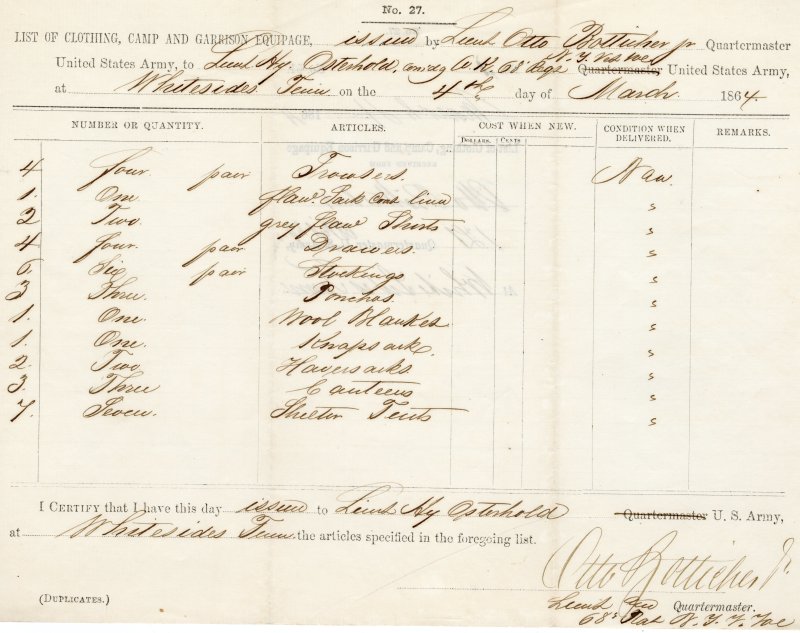 No. 27.
LIST OF CLOTHING, CAMP AND GARRISON EQUIPAGE, issued by Lieut Otto Botticher jr Quartermaster
United States Army, to Lieut Hy. Osterhold, comdg Co K. 68 Regt N. Y. Vet Vol Quartermaster United States Army,
at Whitesides Tenn on the 4th day of March 1864
NUMBER OR QUANTITY. ARTICLES. COST WHEN NEW. CONDITION WHEN DELIVERED. REMARKS.
DOLLARS. CENTS
4 four pair Trowsers. New.
1. One. flan. Sack Coat lined "
2 Two. grey flan Shirts "
4 four. pair Drawers. "
6. Six pair Stockings "
3 Three. Ponchos "
1. One. Wool Blanket "
1. One. Knapsack. "
2. Two Haversacks "
3. Three Canteens "
7. Seven. Shelter Tents "
I CERTIFY that I have this day issued to Lieut Hy Osterhold Quartermaster U. S. Army,
at Whitesides Tenn the articles specified in the foregoing list.
Otto Botticher Jr
Lieut Quartermaster.
(DUPLICATES.) 68th N. Y. V. Vol